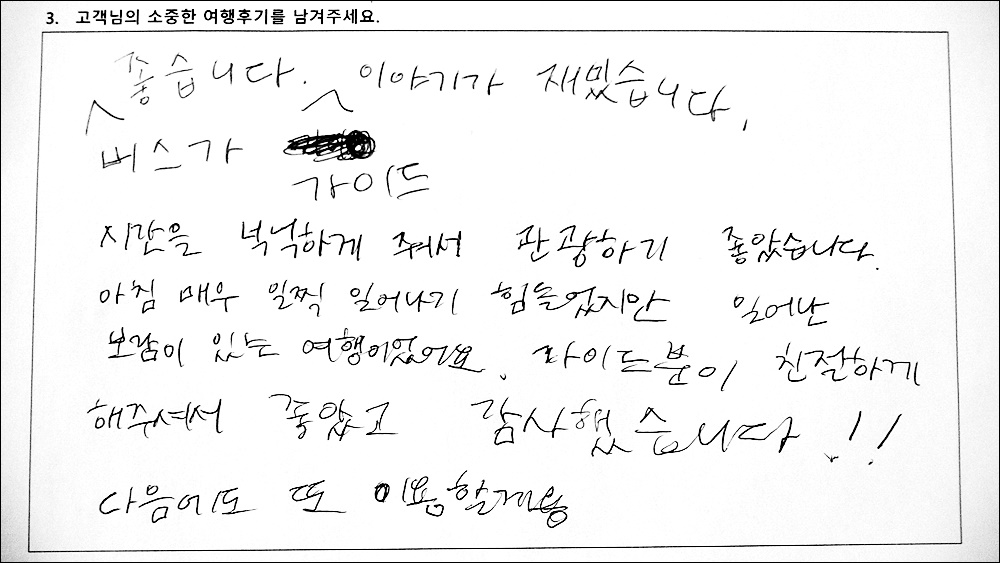 3. 고객님의 소중한 여행후기를 남겨주세요.
좋습니다. 이야기가 재밌습니다.
버스가
가이드
시간을 넉넉하게 줘서 관광하기 좋았습니다.
아침 매우 일찍 일어나기 힘들었지만 일어난
보람이 있는 여행이었어요. 가이드분이 친절하게
해주셔서 좋았고 감사했습니다!!
다음에도 또 이용할게용